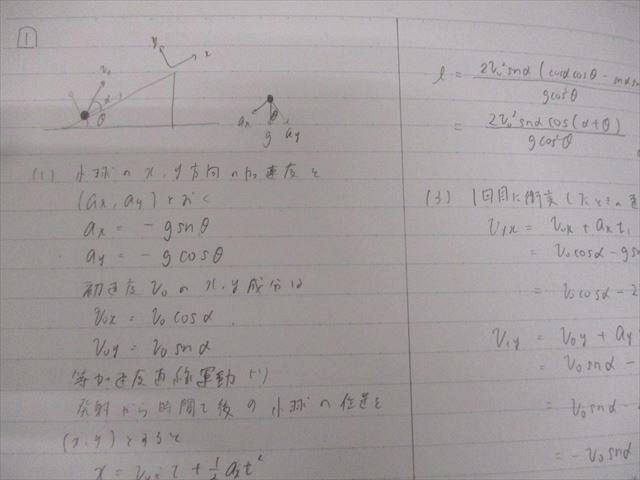 1
y
x
v₀
α
θ
ax
θ
g
ay
(1) 小球の x, y 方向の加速度を
(ax, ay) とおく
ax = - g sinθ
ay = - g cosθ
初速度 v₀ の x, y 成分は
v₀x = v₀ cosα
v₀y = v₀ sinα
等加速度直線運動より
発射から時間 t 後の小球の位置を
(x, y) とすると
x = v₀x t + 1/2 ax t²
l = 2v₀² sinα (cosα cosθ - sinα sin
g cos²θ
= 2v₀² sinα cos(α+θ)
g cos²θ
(3) 1回目に衝突したときの速
v₁x = v₀x + ax t₁
= v₀ cosα - g sin
= v₀ cosα - 2
v₁y = v₀y + ay
= v₀ sinα -
= v₀ sinα - 2
= - v₀ sinα